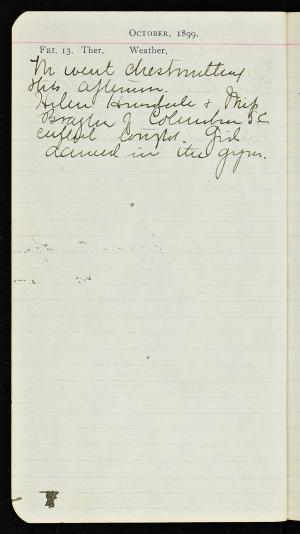 October, 1899.
Fri. 13. Ther. Weather,
went chestnutting
this afternoon.
Helen & Miss
of Columbia S C
called tonight. Girls
danced in the gym.